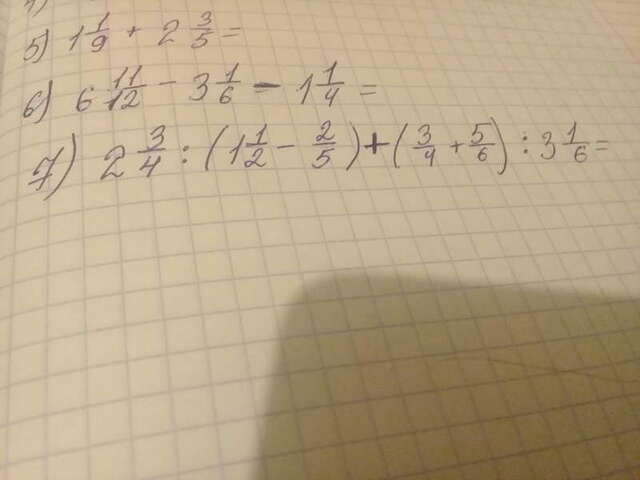 5) 1 1/9 + 2 3/5 =
6) 6 11/12 - 3 1/6 - 1 1/4 =
7) 2 3/4 : (1 1/2 - 2/5) + (3/4 + 5/6) : 3 1/6 =